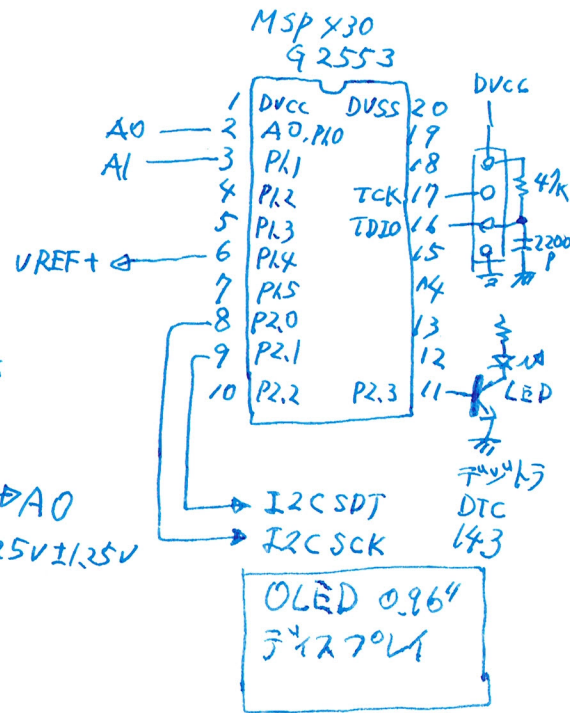 MSP430
G2553
DVCC
1 DVCC DVSS 20
A0 2 A0,P1.0 19
A1 3 P1.1 18
4 P1.2 TCK 17
47K
5 P1.3 TDIO 16
2200
P
VREF+ 6 P1.4 15
7 P1.5 14
8 P2.0 13
9 P2.1 12
10 P2.2 P2.3 11
LED
デジトラ
DTC
143
I2C SDT
I2C SCK
A0
25V±1.25V
OLED 0.96"
ディスプレイ